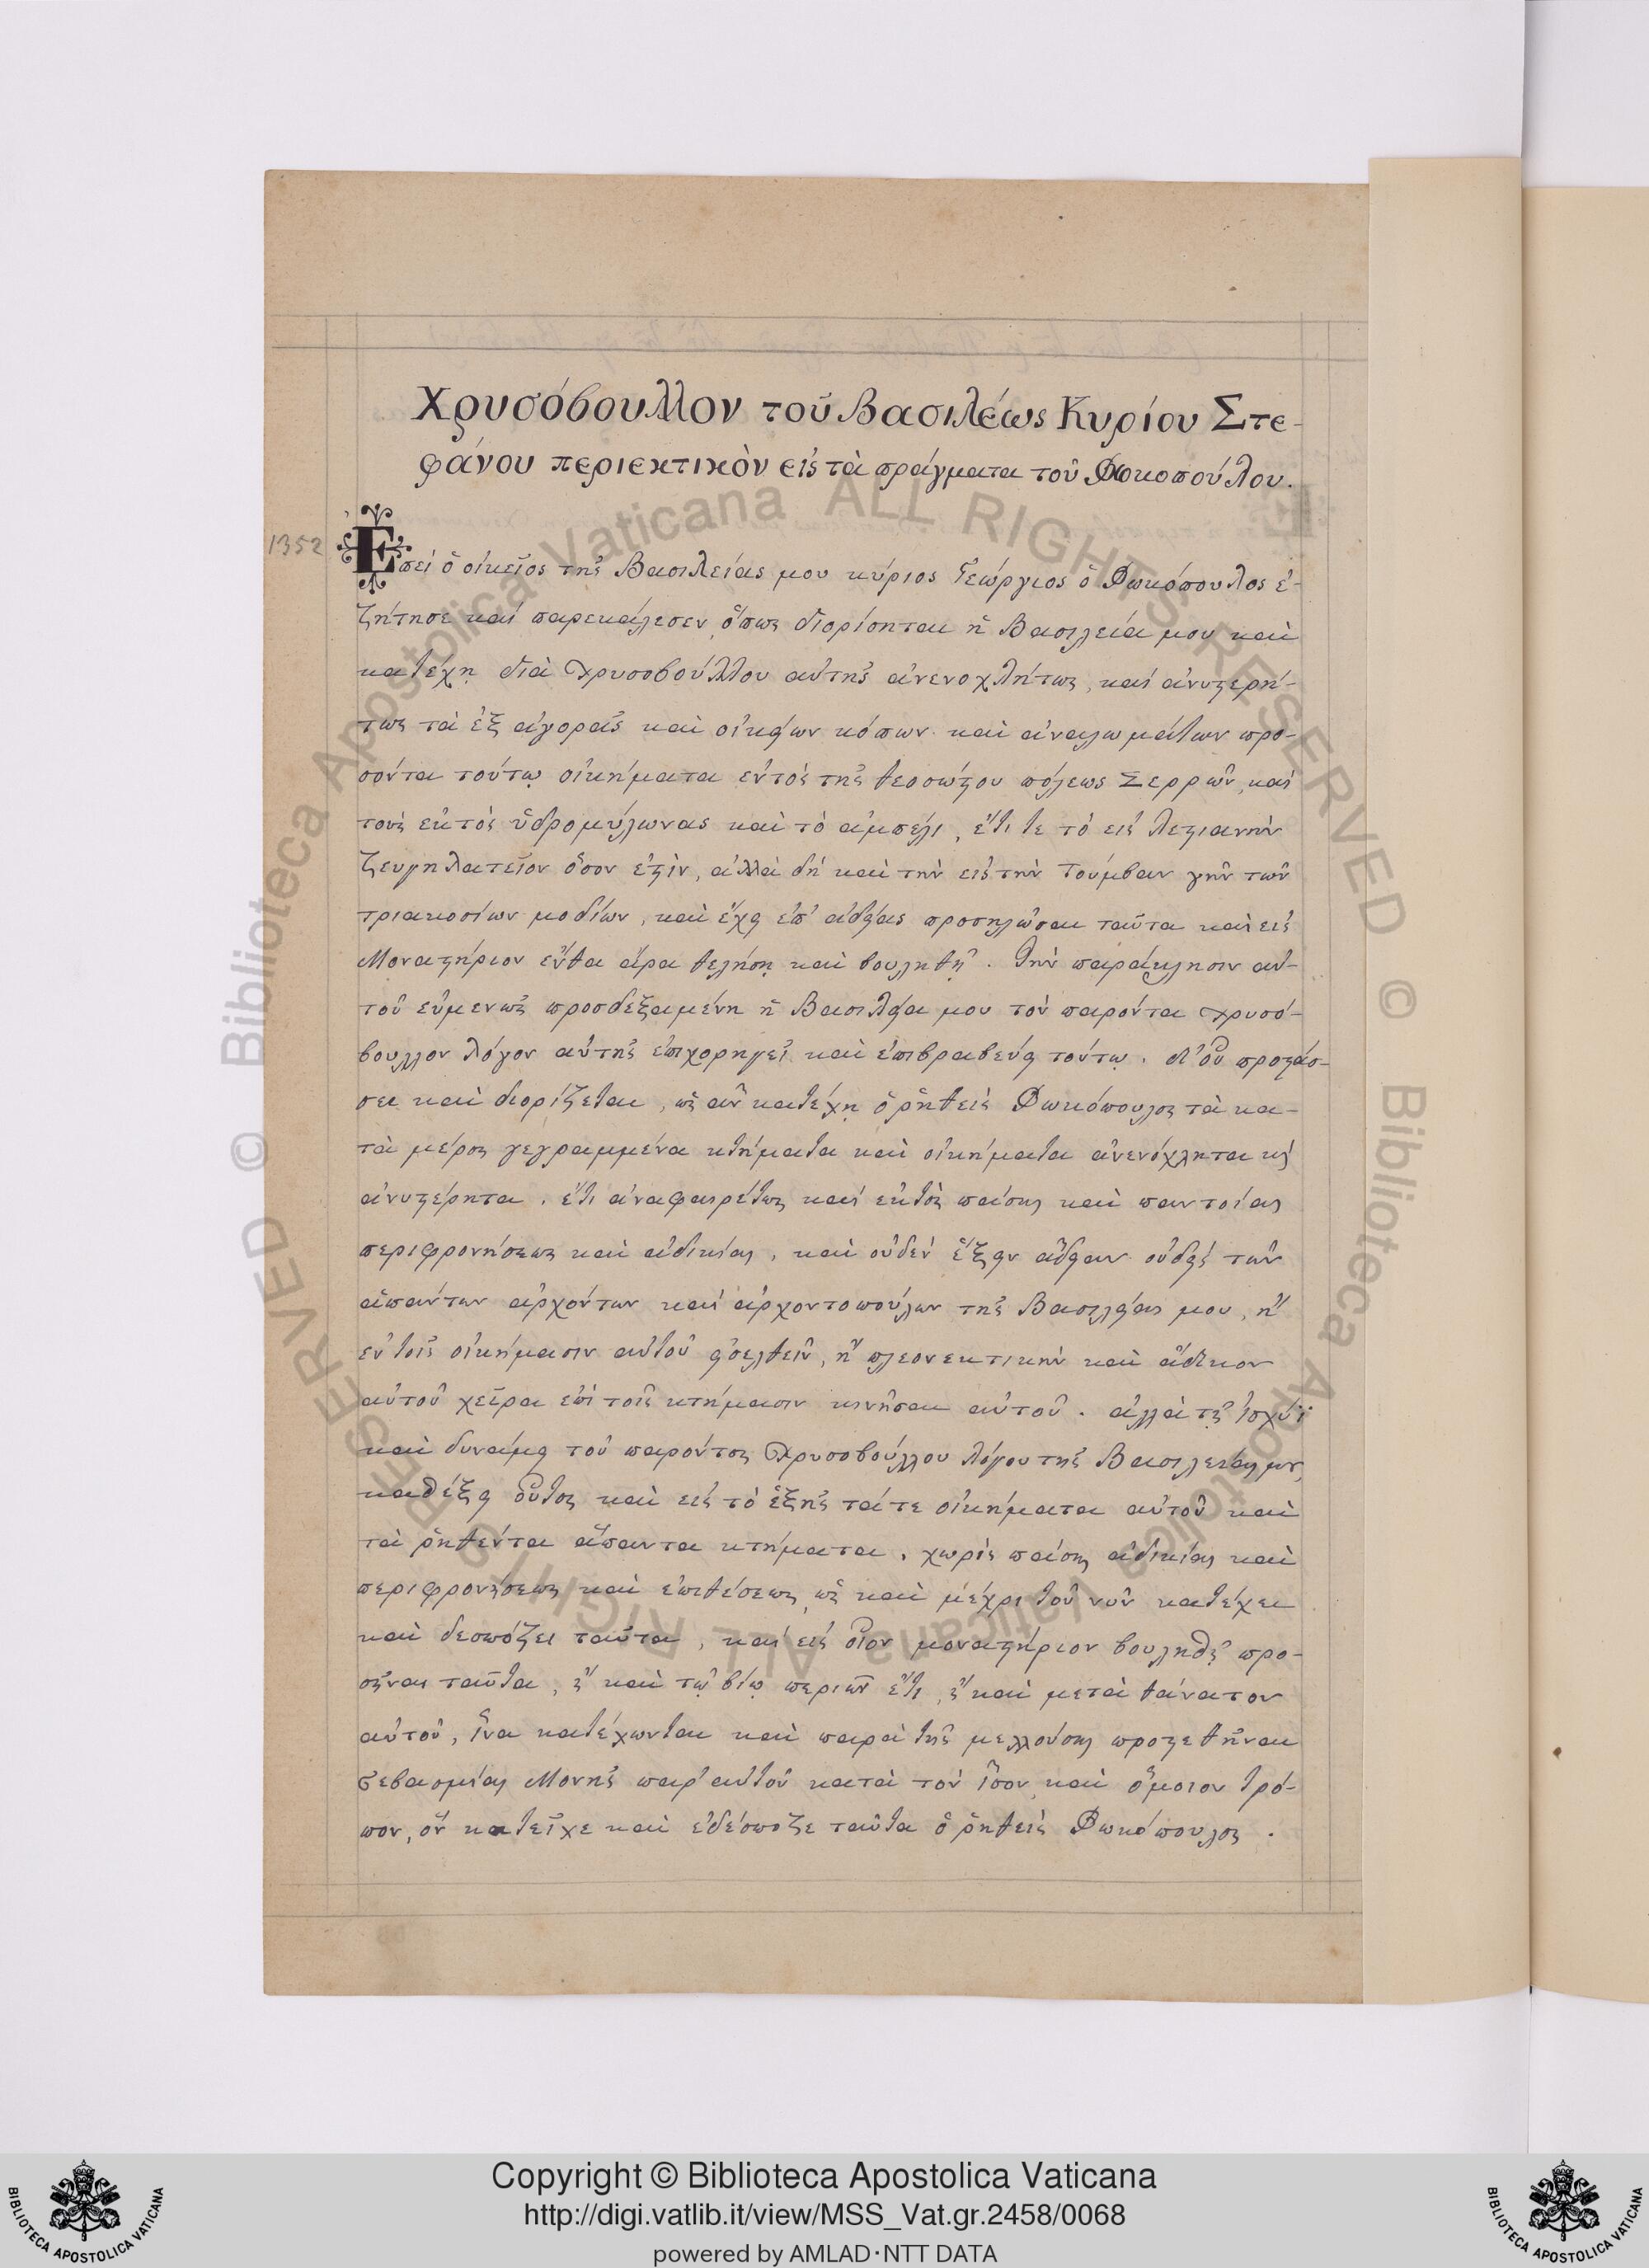 Χρυσόβουλλον τοῦ Βασιλέως Κυρίου Στε-
φάνου περιεκτικὸν εἰς τὰ πράγματα τοῦ Φωκοπούλου.
1352
Ἐπεὶ ὁ οἰκεῖος τῆς Βασιλείας μου κύριος Γεώργιος ὁ Φωκόπουλος ἐ-
ζήτησε καὶ παρεκάλεσεν ὅπως διορίσηται ἡ Βασιλεία μου καὶ
κατέχῃ διὰ χρυσοβούλλου αὐτῆς ἀνενοχλήτως, καὶ ἀνυστερή-
τως τὰ ἐξ ἀγορᾶς καὶ οἰκείων κόπων καὶ ἀναλωμάτων προ-
σόντα τούτῳ οἰκήματα ἐντὸς τῆς θεοσώστου πόλεως Σερρῶν, καὶ
τοὺς ἐκτὸς ὑδρομύλωνας καὶ τὸ ἀμπέλι, ἔτι τε τὸ εἰς Λεστιανὴν
ζευγηλατεῖον ὅσον ἐστὶν, ἀλλὰ δὴ καὶ τὴν εἰς τὴν Τούμβαν γῆν τῶν
τριακοσίων μοδίων, καὶ ἔχῃ ἐπ' ἀδείας προσηλῶσαι ταῦτα καὶ εἰς
Μοναστήριον ἔνθα ἄρα θελήσῃ καὶ βουληθῇ. Τὴν παράκλησιν αὐ-
τοῦ εὐμενῶς προσδεξαμένη ἡ Βασιλεία μου τὸν παρόντα χρυσό-
βουλλον λόγον αὐτῆς ἐπιχορηγεῖ καὶ ἐπιβραβεύει τούτῳ. Δι' οὗ προστάσ-
σει καὶ διορίζεται, ὡς ἂν κατέχῃ ὁ ῥηθεὶς Φωκόπουλος τὰ κα-
τὰ μέρος γεγραμμένα κτήματα καὶ οἰκήματα ἀνενόχλητα κὶ
ἀνυστέρητα. ἔτι ἀναφαιρέτως καὶ ἐκτὸς πάσης καὶ παντοίας
περιφρονήσεως καὶ ἀδικίας, καὶ οὐδὲν ἕξειν ἄδειαν οὐδεὶς τῶν
ἁπάντων ἀρχόντων καὶ ἀρχοντοπούλων τῆς Βασιλείας μου, ἢ
ἐν τοῖς οἰκήμασιν αὐτοῦ εἰσελθεῖν, ἢ πλεονεκτικὴν καὶ ἄδικον
αὐτοῦ χεῖρα ἐπὶ τοῖς κτήμασιν κινῆσαι αὐτοῦ. ἀλλὰ τῇ ἰσχύϊ
καὶ δυνάμει τοῦ παρόντος Χρυσοβούλλου λόγου τῆς Βασιλείας μου,
καθέξει οὗτος καὶ εἰς τὸ ἑξῆς τά τε οἰκήματα αὐτοῦ καὶ
τὰ ῥηθέντα ἅπαντα κτήματα, χωρὶς πάσης ἀδικίας καὶ
περιφρονήσεως καὶ ἐπιθέσεως, ὡς καὶ μέχρι τοῦ νῦν κατέχει
καὶ δεσπόζει ταῦτα, καὶ εἰς οἷον μοναστήριον βουληθῇ προ-
σῆναι ταῦτα, ἢ καὶ τῷ βίῳ περιὼν ἔτι, ἢ καὶ μετὰ θάνατον
αὐτοῦ, ἵνα κατέχωνται καὶ παρὰ τῆς μελλούσης προστεθῆναι
σεβασμίας Μονῆς παρ' αὐτοῦ κατὰ τὸν ἴσον καὶ ὅμοιον τρό-
πον, ὃν κατεῖχε καὶ ἐδέσποζε ταῦτα ὁ ῥηθεὶς Φωκόπουλος.
© Biblioteca Apostolica Vaticana ALL RIGHTS RESERVED © Biblioteca Apostolica Vaticana ALL RIGHTS RESERVED
BIBLIOTECA APOSTOLICA VATICANA
Copyright © Biblioteca Apostolica Vaticana
http://digi.vatlib.it/view/MSS_Vat.gr.2458/0068
powered by AMLAD·NTT DATA
BIBLIOTECA APOSTOLICA VATICANA